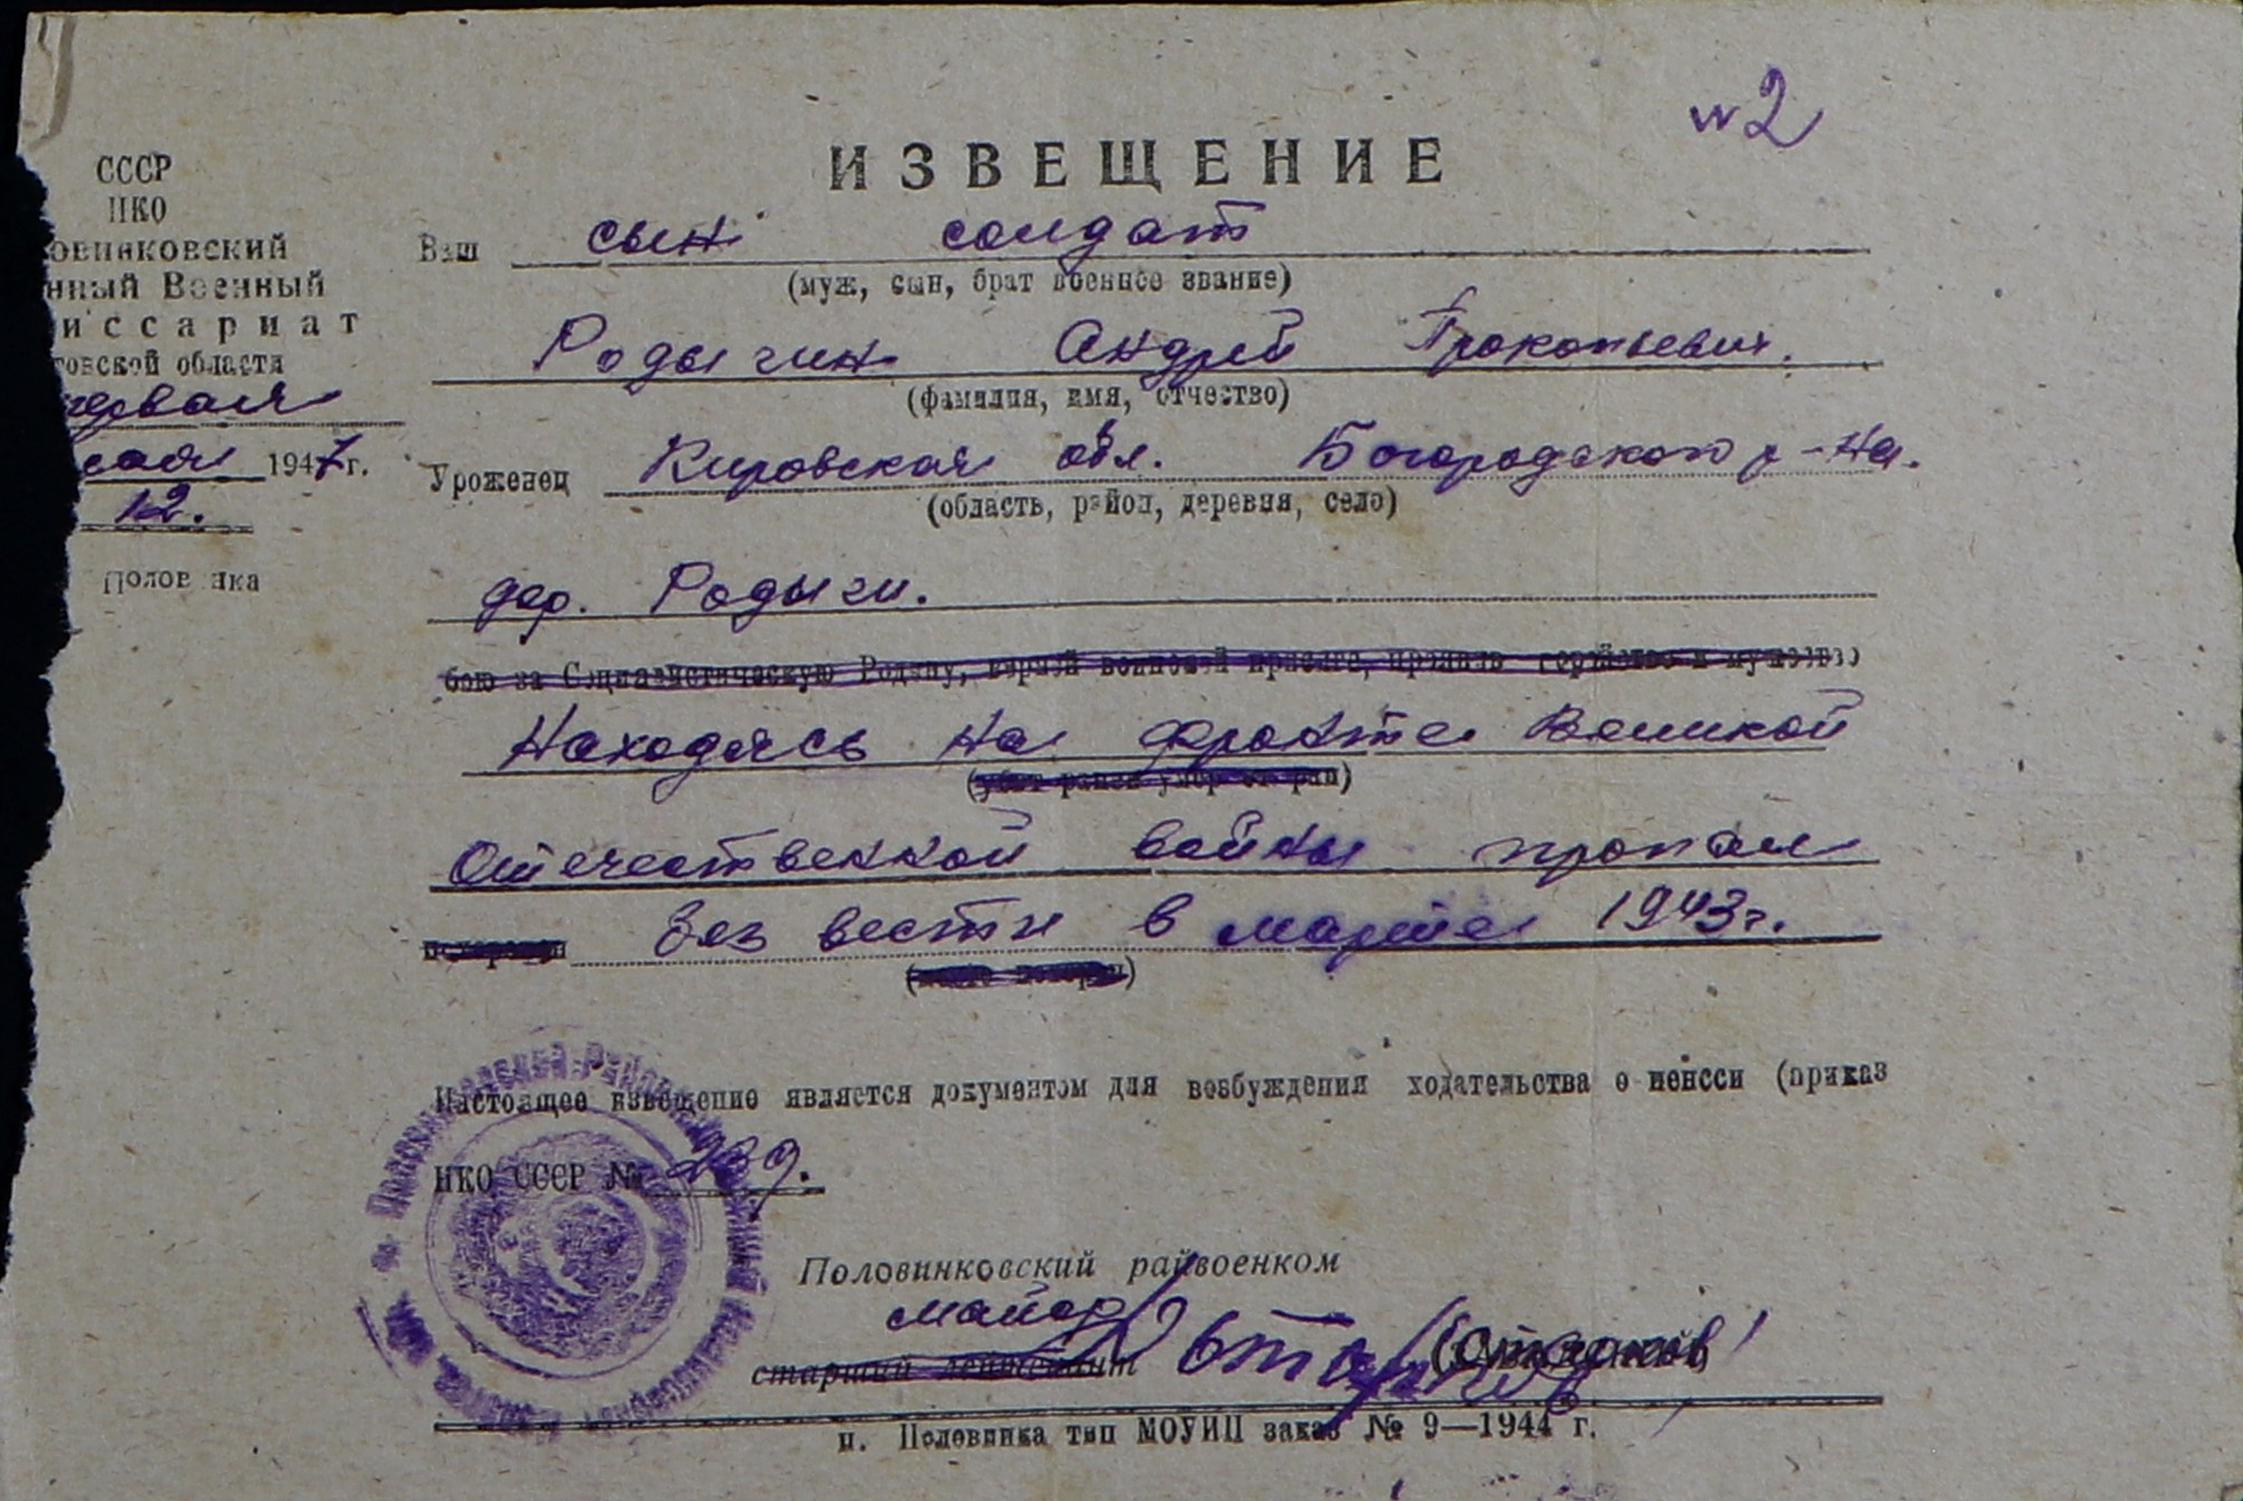 № 2
ИЗВЕЩЕНИЕ
СССР
НКО
овинковский
нный Военный
иссариат
товской области
первая
1947 г.
12.
Половинка
Ваш сын солдат
(муж, сын, брат военное звание)
Родыгин Андрей Прокопьевич.
(фамилия, имя, отчество)
Уроженец Кировская обл. Богородского р-на.
(область, район, деревня, село)
дер. Родыги.
бою за Социалистическую Родину, верный воинской присяге, проявив геройство и мужество
Находясь на фронте Великой
(убит ранен умер от ран)
Отечественной войны пропал
похоронен без вести в марте 1943 г.
Настоящее извещение является документом для возбуждения ходательства о пенсси (приказ
НКО СССР № 239.
Половинковский райвоенком
майор
старший лейтенант
п. Половинка тип МОУИП заказ № 9—1944 г.